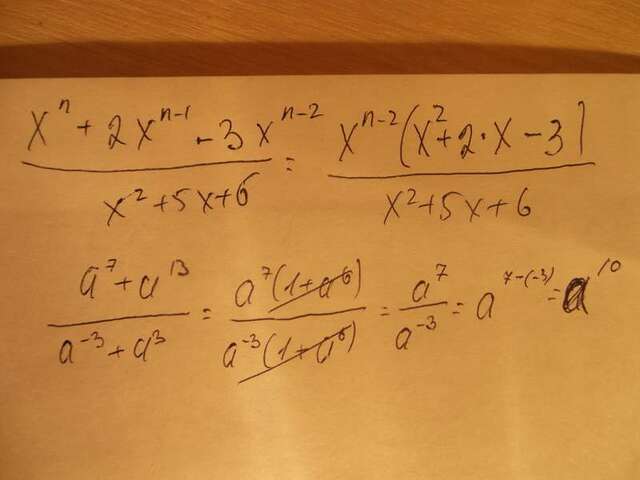 (xⁿ + 2xⁿ⁻¹ - 3xⁿ⁻²)/(x² + 5x + 6) = (xⁿ⁻²(x² + 2·x - 3))/(x² + 5x + 6)
(a⁷ + a¹³)/(a⁻³ + a³) = (a⁷(1 + a⁶))/(a⁻³(1 + a⁶)) = a⁷/a⁻³ = a⁷⁻⁽⁻³⁾ = a¹⁰